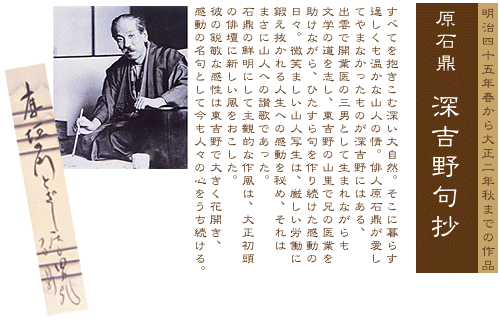 明治四十五年春から大正二年秋までの作品
原石鼎 深吉野句抄
すべてを抱きこむ深い大自然。そこに暮らす
逞しくも温かな山人の情。俳人原石鼎が愛し
てやまなかったものが深吉野にはある、
出雲で開業医の三男として生まれながらも
文学の道を志し、東吉野の山里で兄の医業を
助けながら、ひたすら句を作り続けた感動の
日々。微笑ましい山人写生は、厳しい労働に
鍛え抜かれる人生への感動を秘め、それは
まさに山人への讃歌であった。
石鼎の鮮明にして主観的な作風は、大正初頭
の俳壇に新しい風をおこした。
彼の鋭敏な感性は東吉野で大きく花開き、
感動の名句として今も人々の心をうち続ける。